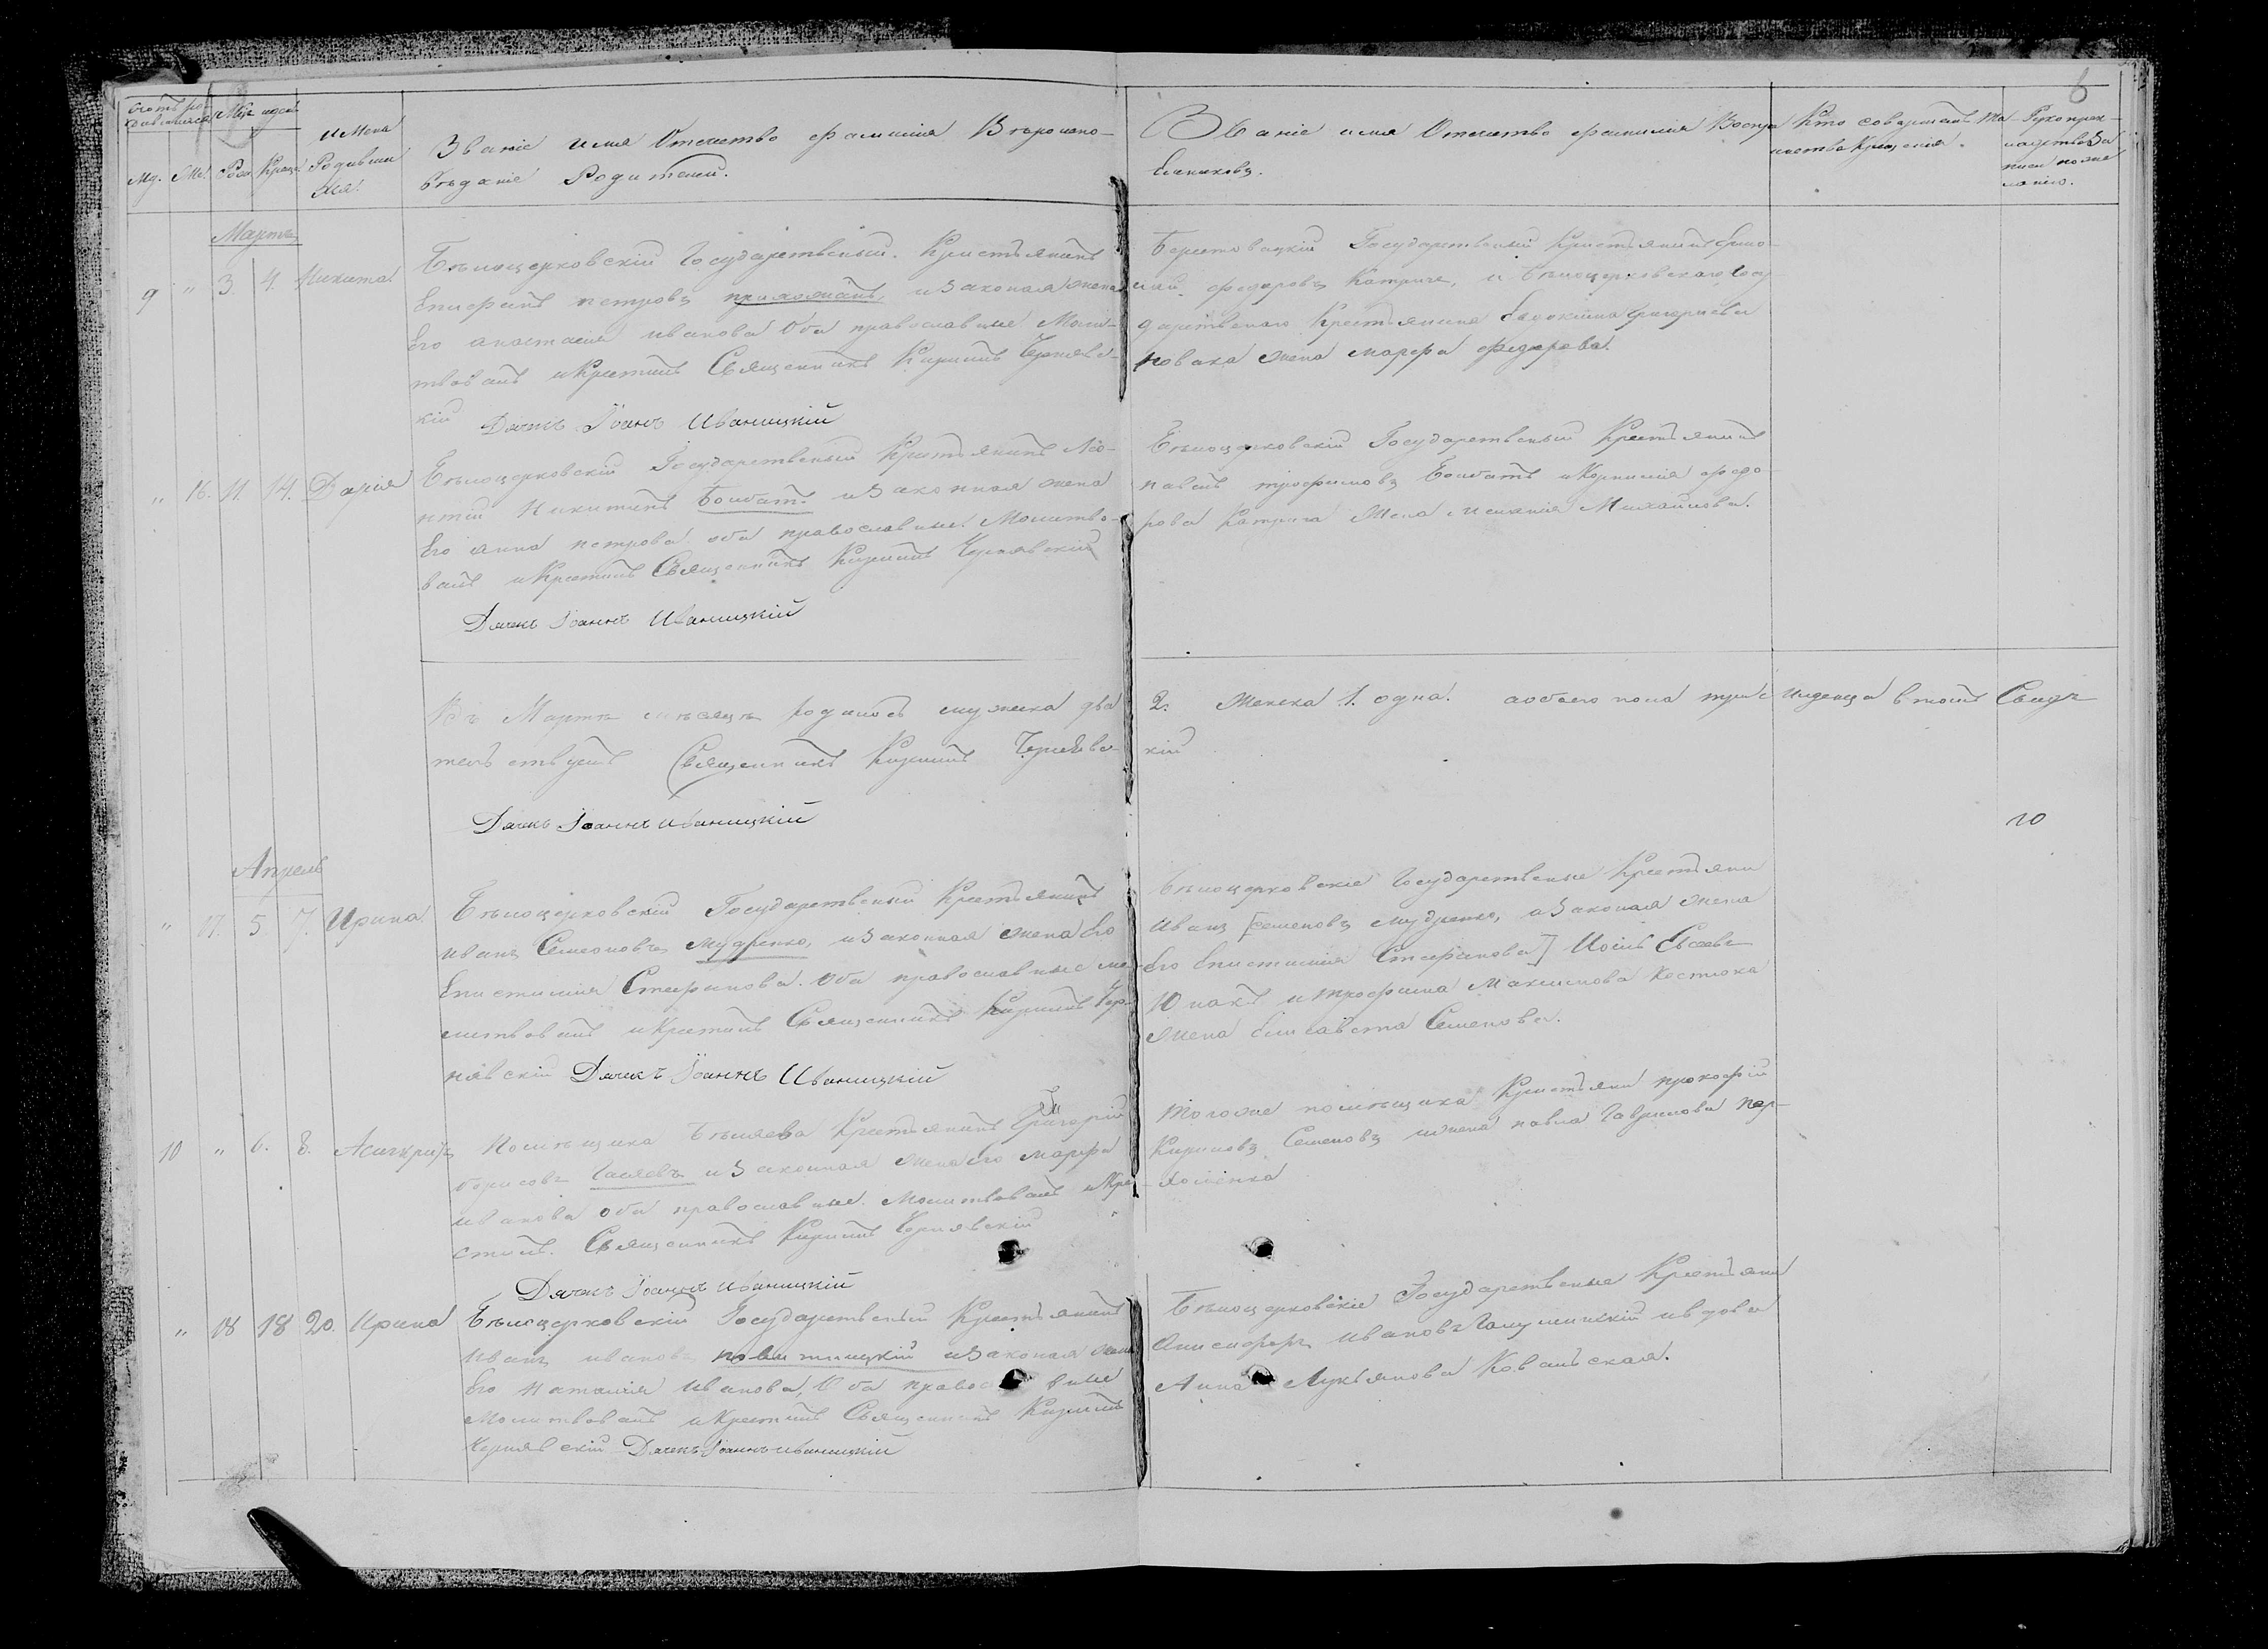 Счетъ ро-
дившихся
Мѣс. и день
М. Ж. Рожд. Крещ.
Имена
Родивши
хся.
Званіе Имя Отечество фамилія Вѣроиспо-
вѣданіе Родителей.
Званіе имя Отечество фамилія Воспрі
емниковъ.
Кто совершалъ Та-
инство Крещенія.
Рукоприк-
ладство
по же
ланію.
6
Мартъ
9 " 3. 4. Никита
Бѣлоцерковскій Государственый Крестьянинъ
Епифанъ петровъ изаконая жена
Его анастасія иванова Оба православные Молит-
твовалъ иКрестилъ Священникъ Кирилъ Чернявс-
кій Дячекъ Іоаннъ Иваницкій
Государственый Крестьянинъ
федоровъ Катрича, и Бѣлоцерковскаго Госу
дарственаго Крестьянина Евдокима Григориева
новака жена марфа федорова.
" 16. 11. 14. Дарія
Бѣлоцерковскій Государственый Крестьянинъ Лео-
нтій Никитинъ изаконная жена
Его анна петрова оба православные. Молитво-
валъ иКрестилъ Священникъ Кирилъ Чернявскій
Дячекъ Іоаннъ Иваницкій
Бѣлоцерковскій Государственый Крестьянинъ
павелъ трофимовъ иКорнилія федо
рова Катрича жена Меланія Михайлова.
Въ Мартѣ мѣсяцѣ родилось мужеска два
2. женска .1. одна. аобоего пола три
втомъ Свидѣ
телствуетъ Священникъ Кирилъ Чернявс-
кій
Дячекъ Іоаннъ Иваницкій
10
Апрель
" 17. 5. 7. Ирина.
Бѣлоцерковскій Государственый Крестьянинъ
иванъ Семеоновъ мудренко, изаконная жена Его
Епистимія Стефанова. Оба православные мо
литвовалъ иКрестилъ Священникъ Кирилъ Чер-
нявскій Дячекъ Іоаннъ Иваницкій
Бѣлоцерковскіе Государственые Крестьяни
иванъ [семеновъ мудренко, изаконая жена
Его Епистимія Стефанова]
Юнакъ и трофима Максимова Костюка
жена Елисавета Семенова.
10 " 6. 8. Асигкритъ
Помѣщика Бѣляева Крестьянинъ Григорій
борисовъ изаконная жена его марфа
иванова оба православные. Молитвовалъ иКре-
стилъ. Священникъ Кирилъ Чернявскій
Дячекъ Іоаннъ Иваницкій
Тогоже помѣщика Крестьяни прокофій
Кириловъ Семеновъ ижена павла Гаврилова пар-
хоменка
" 18 18 20. Ирина
Бѣлоцерковскій Государственый Крестьянинъ
иванъ ивановъ изаконая жена
Его Наталія Иванова, Оба православные
Молитвовалъ иКрестилъ Священникъ Кирилъ
Чернявскій Дячекъ Іоаннъ Иваницкій
Бѣлоцерковскіе Государственые Крестьяни
Онисифоръ ивановъ ивдова
Анна Лукьянова Ковальская.